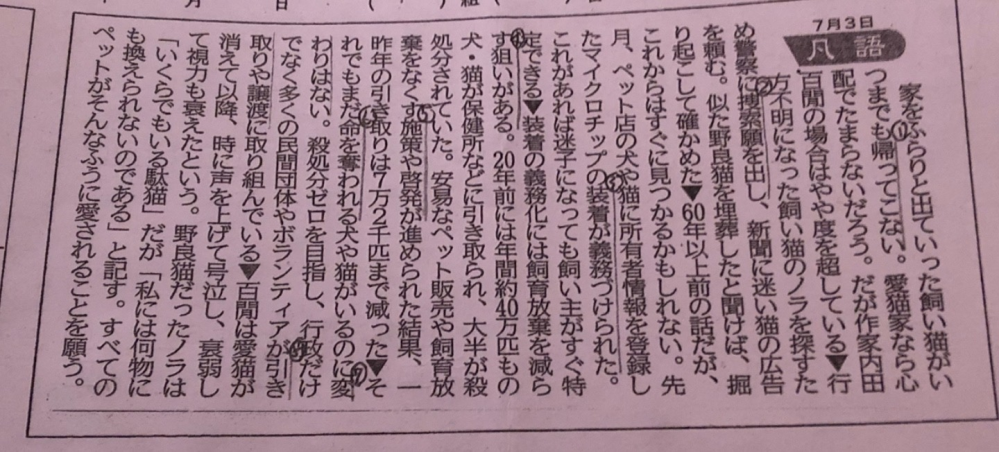 7月3日
凡語
家をふらりと出ていった飼い猫がい
つまでも帰ってこない。愛猫家なら心
配でたまらないだろう。だが作家内田
百閒の場合はやや度を超している▼行
方不明になった飼い猫のノラを探すた
め警察に捜索願を出し、新聞に迷い猫の広告
を頼む。似た野良猫を埋葬したと聞けば、掘
り起こして確かめた▼60年以上前の話だが、
これからはすぐに見つかるかもしれない。先
月、ペット店の犬や猫に所有者情報を登録し
たマイクロチップの装着が義務づけられた。
これがあれば迷子になっても飼い主がすぐ特
定できる▼装着の義務化には飼育放棄を減ら
す狙いがある。20年前には年間約40万匹もの
犬・猫が保健所などに引き取られ、大半が殺
処分されていた。安易なペット販売や飼育放
棄をなくす施策や啓発が進められた結果、一
昨年の引き取りは7万2千匹まで減った▼そ
れでもまだ命を奪われる犬や猫がいるのに変
わりはない。殺処分ゼロを目指し、行政だけ
でなく多くの民間団体やボランティアが引き
取りや譲渡に取り組んでいる▼百閒は愛猫が
消えて以降、時に声を上げて号泣し、衰弱し
て視力も衰えたという。野良猫だったノラは
「いくらでもいる駄猫」だが「私には何物に
も換えられないのである」と記す。すべての
ペットがそんなふうに愛されることを願う。